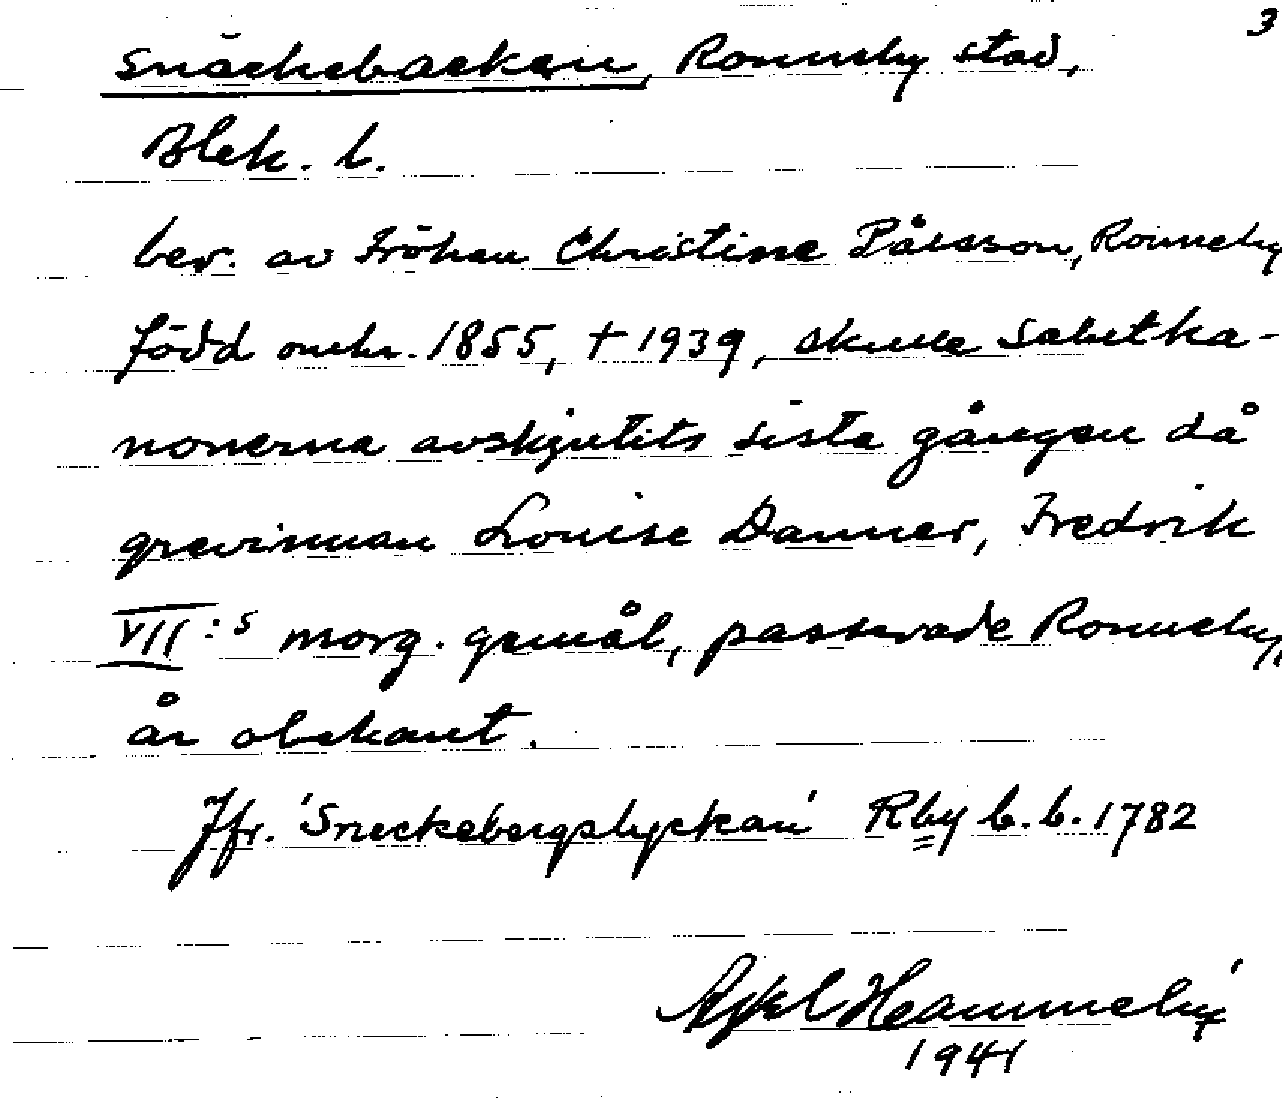 3
Snäckebacken, Ronneby stad,
Blek. l.
ber. av Fröken Christine Pålsson, Ronneby
född omkr. 1855, † 1939, skulle Salutka-
nonerna avskjutits sista gången då
grevinnan Louise Danner, Fredrik
VII:s morg. gemål, passerade Ronneby,
år obekant.
Jfr. 'Sneckebergslyckan' Rby l. b. 1782
Axel Hammelin
1941